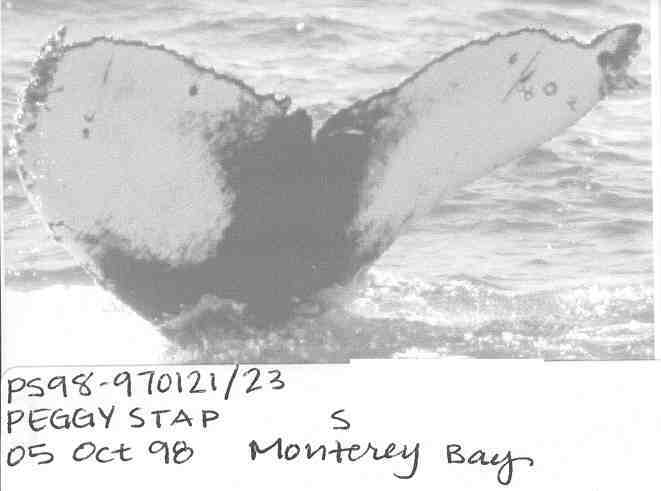 PS98-970121/23
PEGGY STAP S
05 Oct 98 Monterey Bay